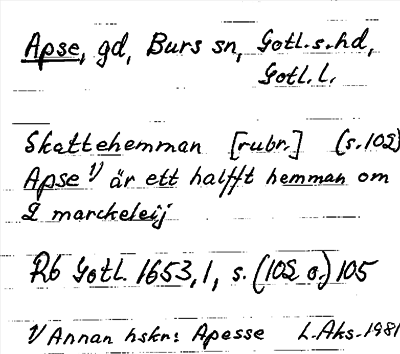 Apse, gd, Burs sn, Gotl.s.hd,
Gotl.l.
Skattehemman [rubr.] (s.102)
Apse 1/ är ett halfft hemman om
2 marckeleij
Rb Gotl. 1653,1, s. (102 o.) 105
1/ Annan hskr: Apesse L.Aks.1981